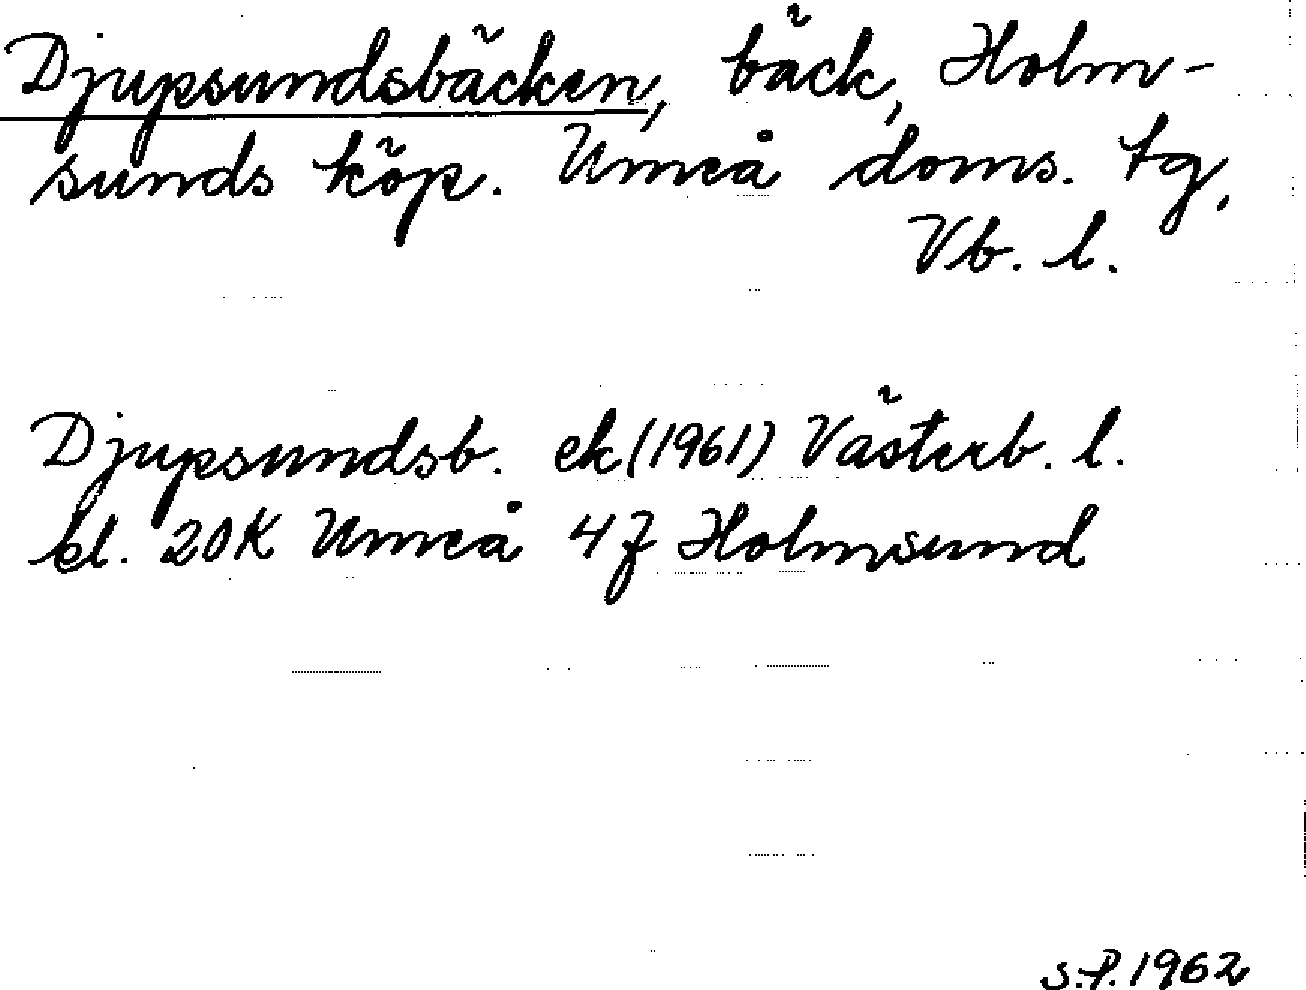 Djupsundsbäcken, bäck, Holm-
sunds köp. Umeå doms. tg,
Vb. l.
Djupsundsb. ek (1961) Västerb. l.
bl. 20K Umeå 4f Holmsund
S.P. 1962